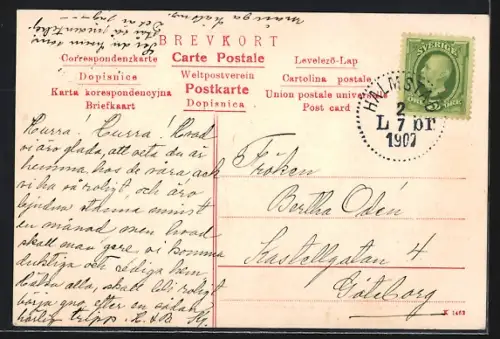 BREVKORT
Correspondenzkarte
Carte Postale
Levelező-Lap
Dopisnice
Weltpostverein
Cartolina postale
Karta korespondencyjna
Postkarte
Union postale universelle
Briefkaart
Dopisnica
Post card
SVERIGE
5 ÖRE
HALMSTAD
2
L 7 br
1907
Hurra! Hurra! Hvad
vi äro glada, att veta du är
hemma, hos de våra och
vi ha så roligt, och äro
bjudna stanna minst
en månad men hvad
skall man göra, vi komma
duktiga och
alla, skall bli roligt
börja gno, efter en sådan
härlig tripp.
Fröken
Bertha Odén
Kastellgatan 4
Göteborg
K 1463